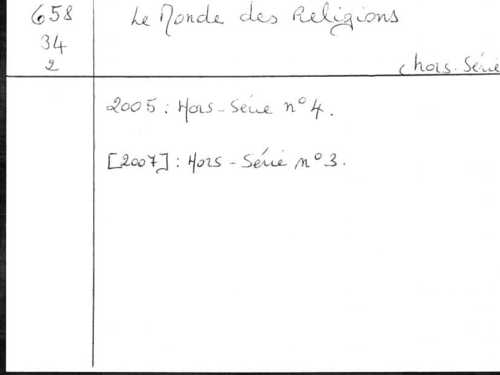 658
34
2
Le Monde des Religions
(hors-Série
2005 : Hors-Série n° 4.
[2007] : Hors-Série n° 3.